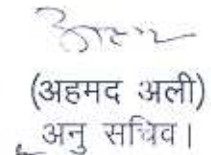 (अहमद अली)
अनु सचिव।